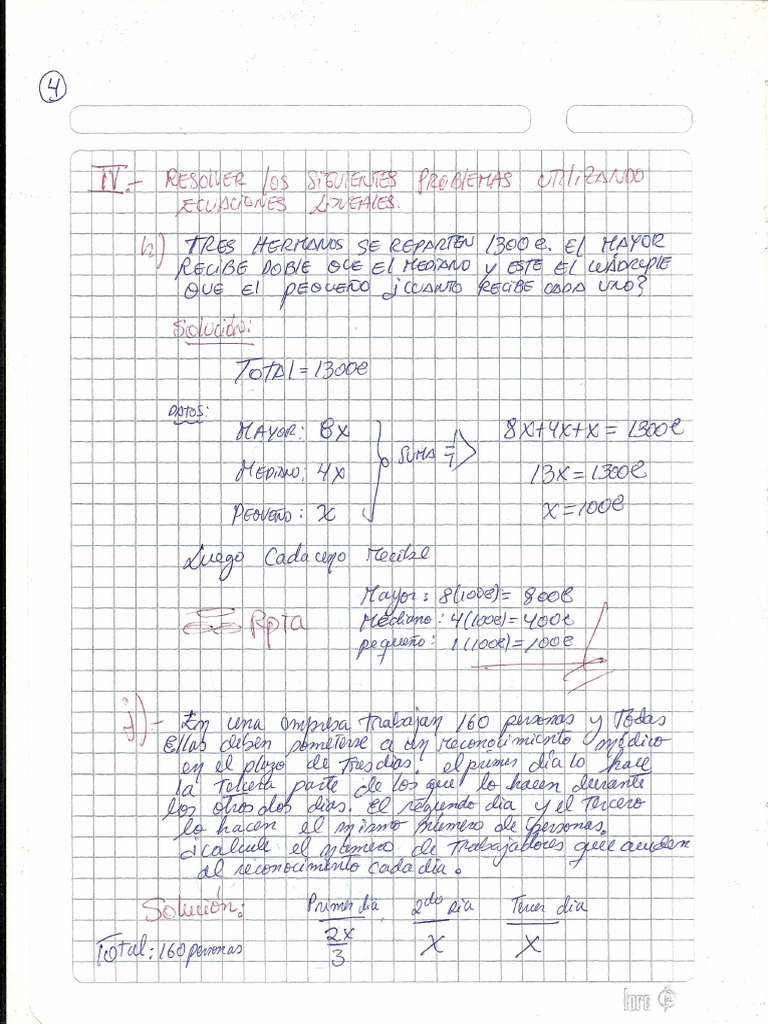 4
IV.- RESOLVER LOS SIGUIENTES PROBLEMAS UTILIZANDO
ECUACIONES LINEALES.
h) TRES HERMANOS SE REPARTEN 1300€. EL MAYOR
RECIBE DOBLE QUE EL MEDIANO Y ESTE EL CUADRUPLE
QUE EL PEQUEÑO ¿CUANTO RECIBE CADA UNO?
Solución:
TOTAL = 1300€
DATOS:
MAYOR: 8x
MEDIANO: 4x
PEQUEÑO: x
SUMA ⇒
8x+4x+x = 1300€
13x = 1300€
x = 100€
Luego Cada uno Recibe
Mayor: 8(100€) = 800€
Mediano: 4(100€) = 400€
pequeño: 1(100€) = 100€
∴ Rpta
j)- En una empresa trabajan 160 personas y Todas
Ellas deben someterse a un reconocimiento médico
en el plazo de Tres dias. el primer día lo hace
la Tercera parte de los que lo hacen durante
los otros dos dias. El segundo dia y el Tercero
lo hacen el mismo número de personas.
¡Calcule el número de Trabajadores que acuden
al reconocimiento cada dia.
Solución:
Primer dia 2do Dia Tercer dia
Total: 160 personas 2x/3 x x
loro